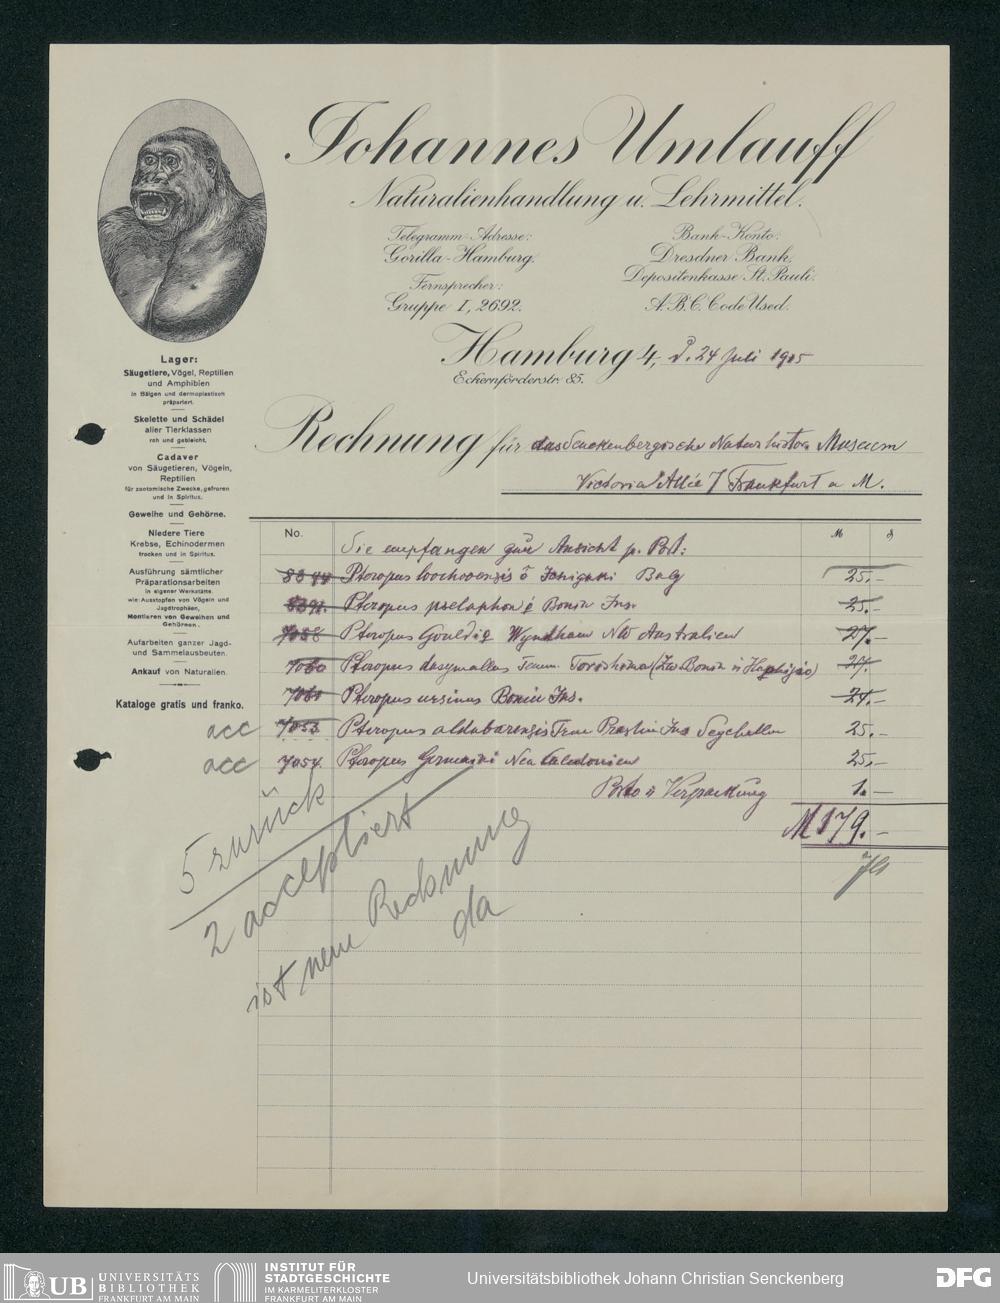 Johannes Umlauff
Naturalienhandlung u. Lehrmittel.
Telegramm-Adresse:
Gorilla-Hamburg.
Fernsprecher:
Gruppe I, 2692.
Bank-Konto:
Dresdner Bank,
Depositenkasse St. Pauli.
A.B.C. Code Used.
Hamburg 4, d. 24 Juli 1905
Eckernförderstr. 85.
Lager:
Säugetiere, Vögel, Reptilien
und Amphibien
in Bälgen und dermoplastisch
präpariert.
Skelette und Schädel
aller Tierklassen
roh und gebleicht.
Cadaver
von Säugetieren, Vögeln,
Reptilien
für zootomische Zwecke, gefroren
und in Spiritus.
Geweihe und Gehörne.
Niedere Tiere
Krebse, Echinodermen
trocken und in Spiritus.
Ausführung sämtlicher
Präparationsarbeiten
in eigener Werkstätte.
wie: Ausstopfen von Vögeln und
Jagdtrophäen,
Montieren von Geweihen und
Gehörnen.
Aufarbeiten ganzer Jagd-
und Sammelausbeuten.
Ankauf von Naturalien.
Kataloge gratis und franko.
Rechnung für das Senckenbergische Naturhistor. Museum
Victoria Allée 7 Frankfurt a M.
No. M
Sie empfangen zur Ansicht p. Post:
Pteropus loochooensis Balg 25.-
Pteropus pselaphon Bonin Ins. 25.-
7058 Pteropus Gouldi Wyndham NW Australien 27.-
7060 Pteropus dasymallus Temm. Toroshima (Zw. Bonin u
7061 Pteropus ursinus Bonin Ins. 24.-
acc 7053 Pteropus aldabarensis True Praslin Ins Seychellen 25.-
acc 7054 Pteropus Germaini Neu Caledonien 25.-
Porto u Verpackung 1.-
M 179.-
5 zurück
2 acceptiert
ist neue Rechnung
da
UB UNIVERSITÄTS
BIBLIOTHEK
FRANKFURT AM MAIN
INSTITUT FÜR
STADTGESCHICHTE
IM KARMELITERKLOSTER
FRANKFURT AM MAIN
Universitätsbibliothek Johann Christian Senckenberg
DFG